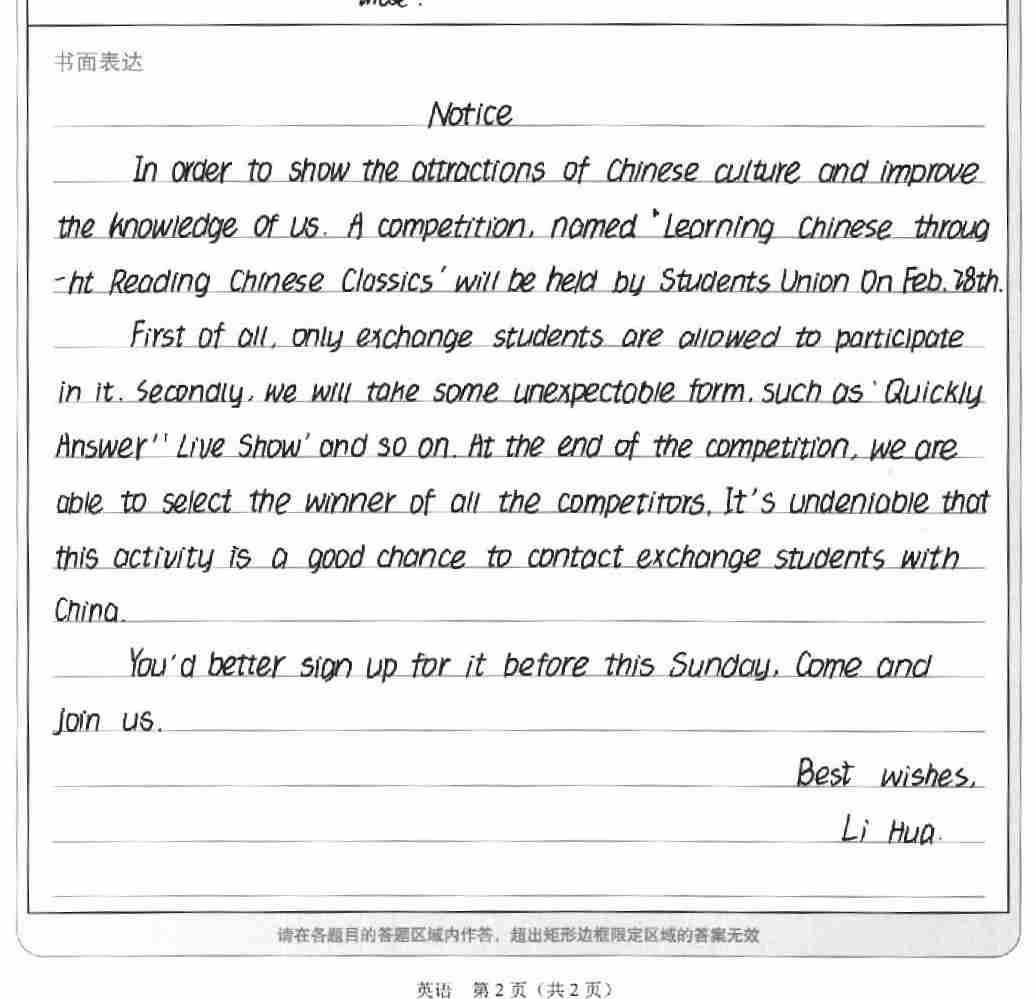 those.
书面表达
Notice
In order to show the attractions of Chinese culture and improve
the knowledge of us. A competition, named 'Learning Chinese throug
-ht Reading Chinese Classics' will be held by Students Union On Feb. 28th.
First of all, only exchange students are allowed to participate
in it. Secondly, we will take some unexpectable form, such as 'Quickly
Answer'' Live Show' and so on. At the end of the competition, we are
able to select the winner of all the competitors. It's undeniable that
this activity is a good chance to contact exchange students with
China.
You'd better sign up for it before this Sunday, Come and
join us.
Best wishes,
Li Hua.
请在各题目的答题区域内作答，超出矩形边框限定区域的答案无效
英语 第 2 页（共 2 页）